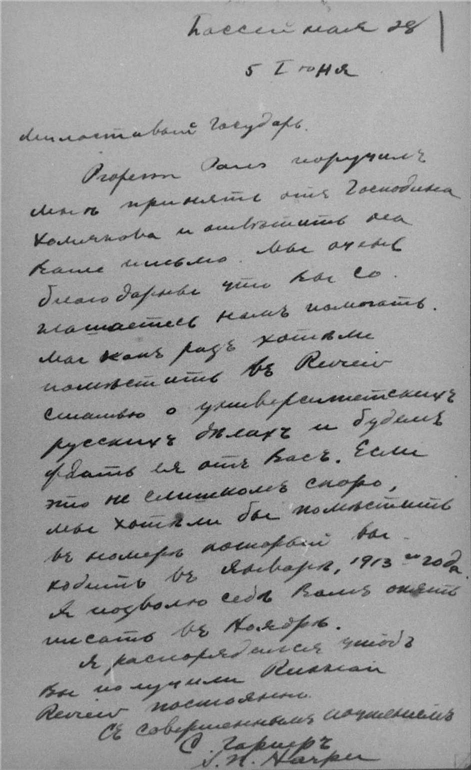 Бассейная 28
5 Iюня
Милостивый Государь.
Professor Pares поручилъ
мнѣ принять отъ Господина
Хомякова и отвѣтить на
Ваше письмо. Мы очень
благодарны что Вы со-
глашаетесь намъ помогать.
Мы какъ радъ хотѣли
помѣстить въ Review
статью о университетскихъ
русскихъ дѣлахъ и будемъ
ждать ея отъ Васъ. Если
это не слишкомъ скоро,
мы хотѣли бы помѣстить
въ номеръ который вы-
ходитъ въ Январѣ, 1913 го года.
Я позволю себѣ Вамъ опять
писать въ Ноябрѣ.
Я распорядился чтобъ
Вы получили Russian
Review постоянно.
Съ совершеннымъ почтениемъ
С. Гарперъ
S. N. Harper